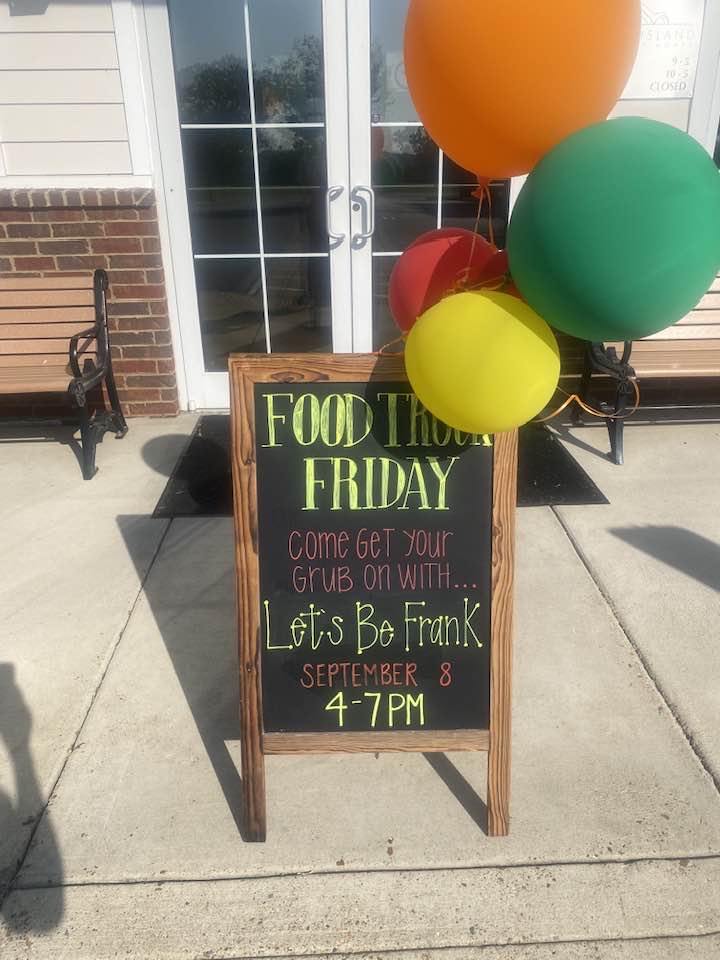 ISLAND
9-5
10-5
CLOSED
FOOD TRUCK
FRIDAY
COME GET YOUR
GRUB ON WITH...
Let's Be Frank
SEPTEMBER 8
4-7PM